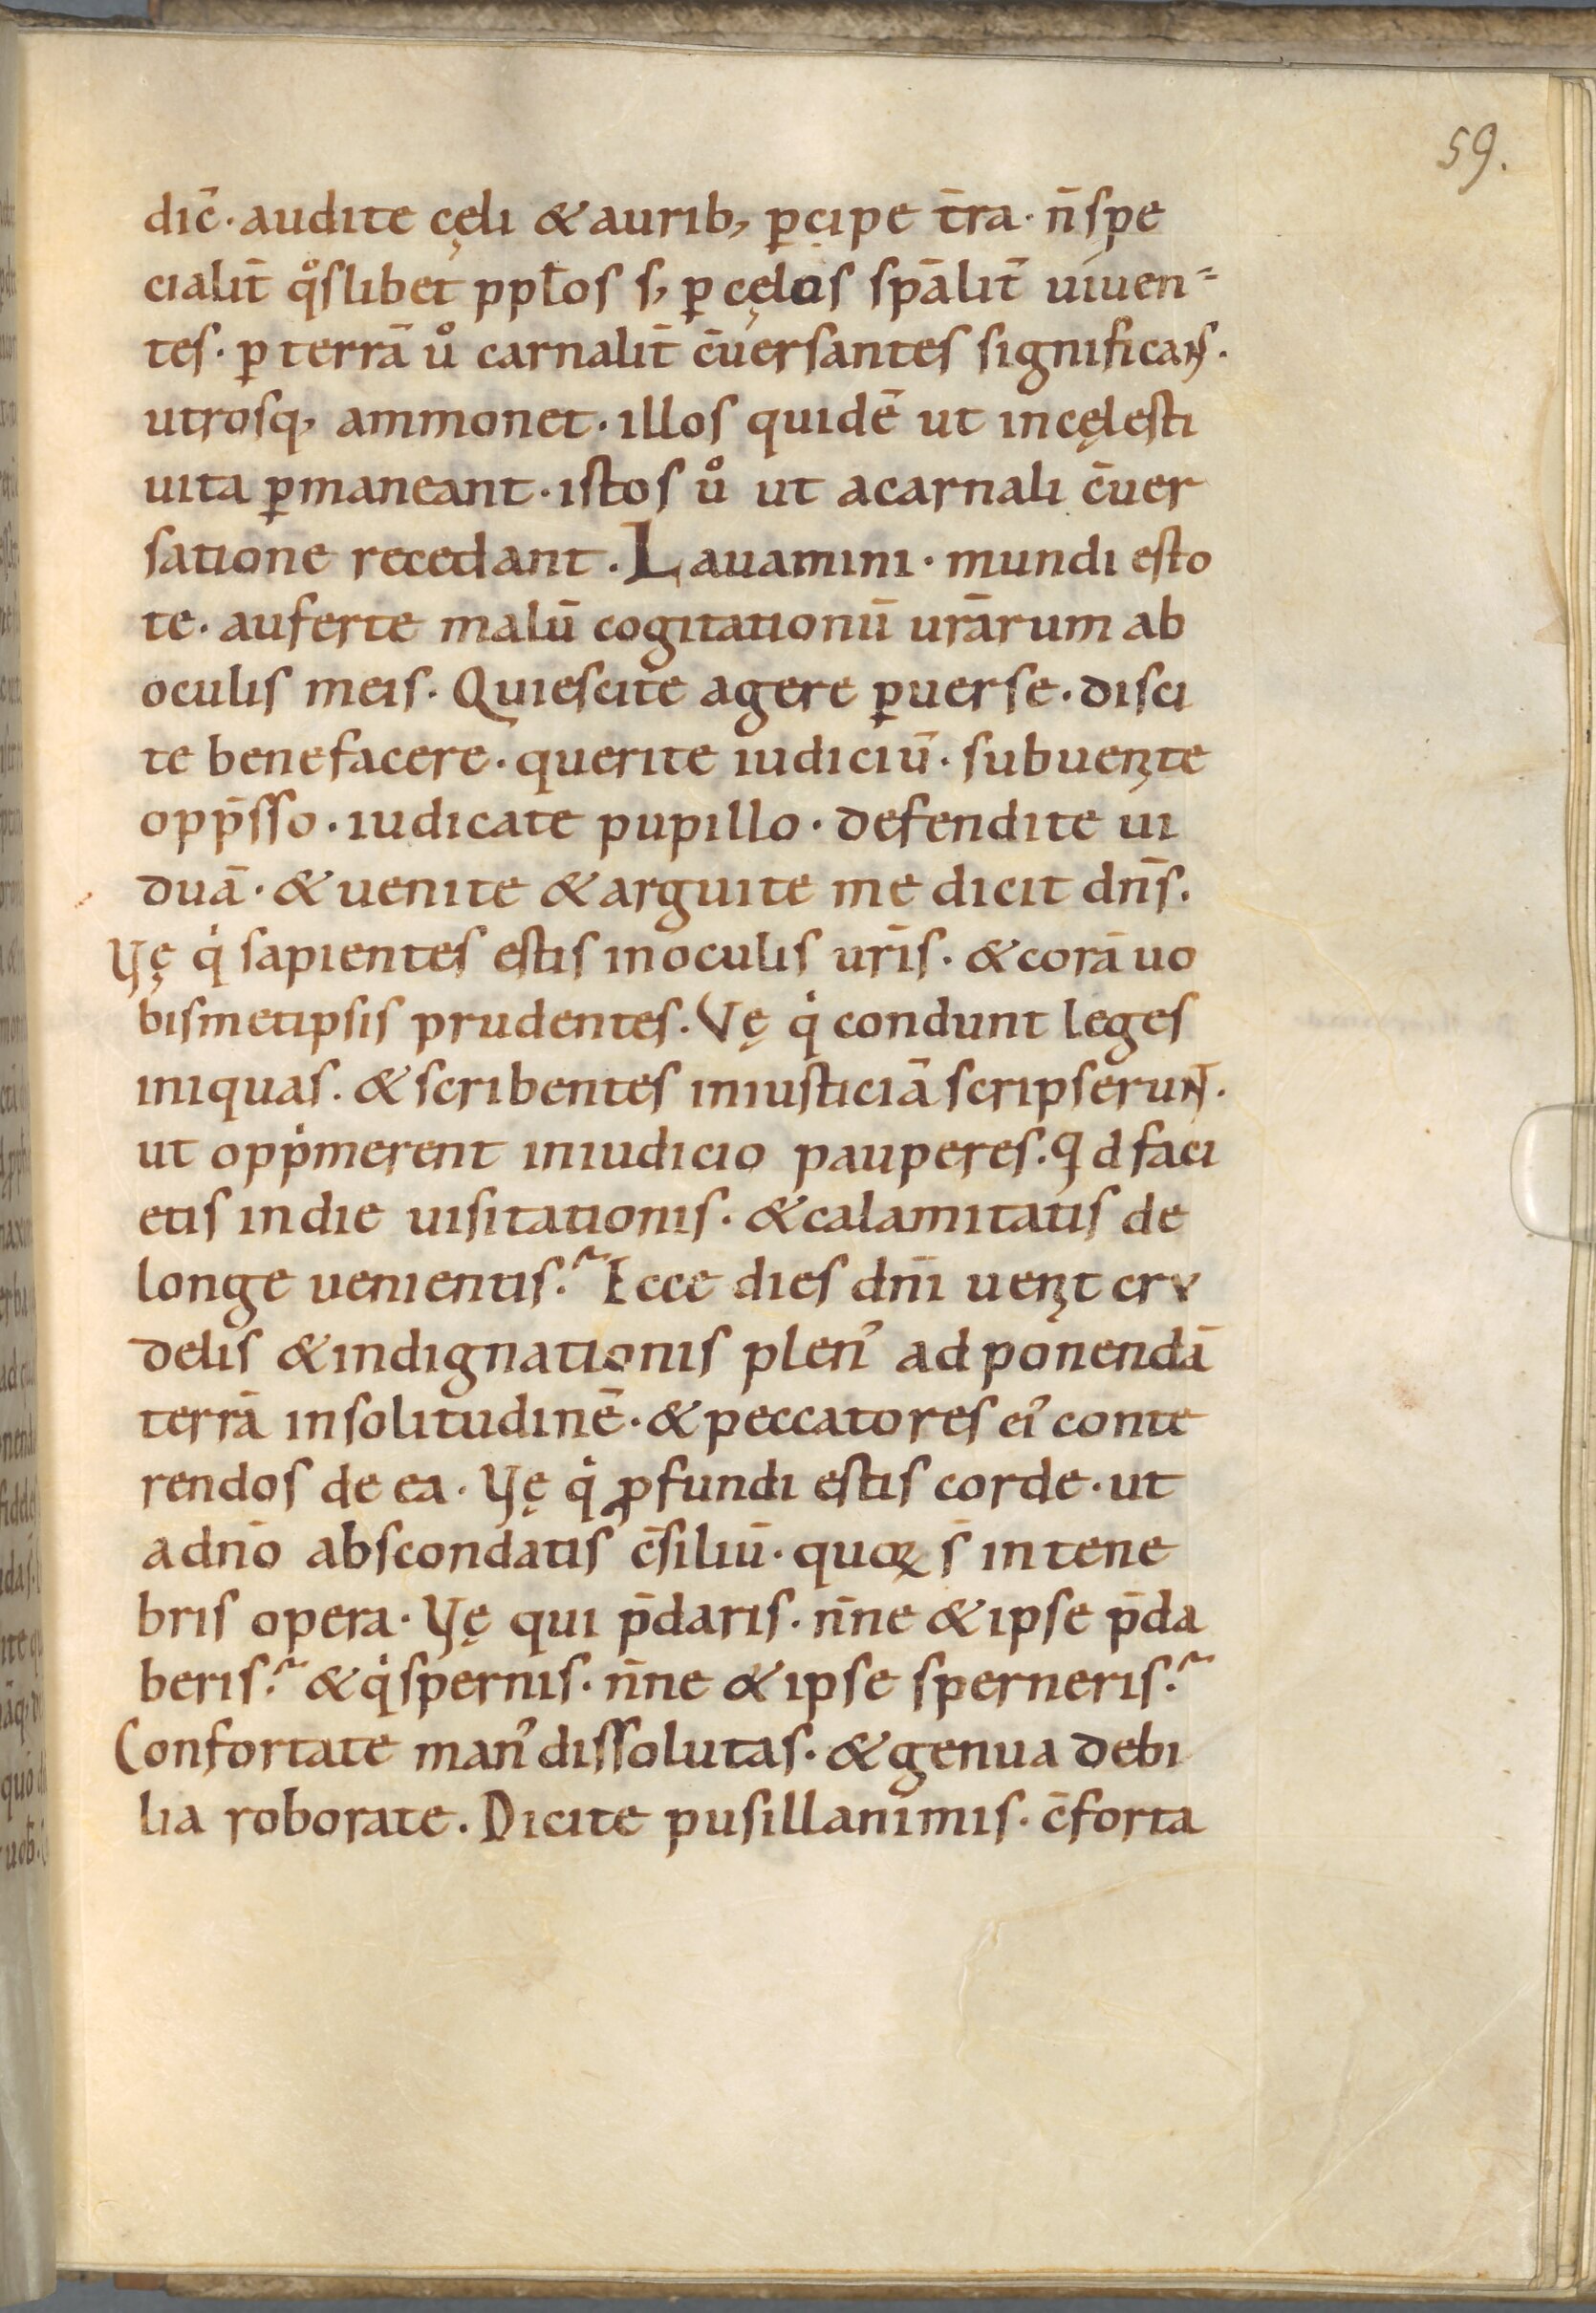 59.
dic̄ · audite cęli & aurib; p̄cipe t̄ra · n̄ spe
cialit̄ qͦslibet ppl̄os s; ꝑ cęlos sp̄alit̄ uiuen-
tes · ꝑ terrā uͦ carnalit̄ c̄uersantes significans .
utrosq; ammonet · illos quidē ut in cęlesti
uita ꝑmaneant · istos uͦ ut acarnali c̄uer
satione recedant . Lauamini · mundi esto
te · auferte malū cogitationū ur̄arum ab
oculis meis · Quiescite agere ꝑuerse · disci
te bene facere · querite iudiciū · subuenite
opp̄sso · iudicate pupillo · defendite ui
duā · & uenite & arguite me dicit dn̄s .
Vę qͥ sapientes estis inoculis ur̄is · & corā uo
bismetipsis prudentes . Vę qͥ condunt leges
iniquas . & scribentes iniusticiā scripserunt .
ut oppͥmerent iniudicio pauperes . qͥd faci
etis in die uisitationis · & calamitatis de
longe uenientis ? Ecce dies dn̄i uenit cru
delis & indignationis plenꝰ ad ponendā
terrā in solitudinē · & peccatores eiꝰ conte
rendos de ea · Vę qͥ ꝓfundi estis corde · ut
adn̄o abscondatis c̄siliū · quoꝝ s̄ in tene
bris opera · Vę qui p̄daris · n̄ne & ipse p̄da
beris ? & qͥ spernis · n̄ne & ipse sperneris ?
Confortate manꝰ dissolutas · & genua debi
lia roborate . Dicite pusillanimis · c̄forta